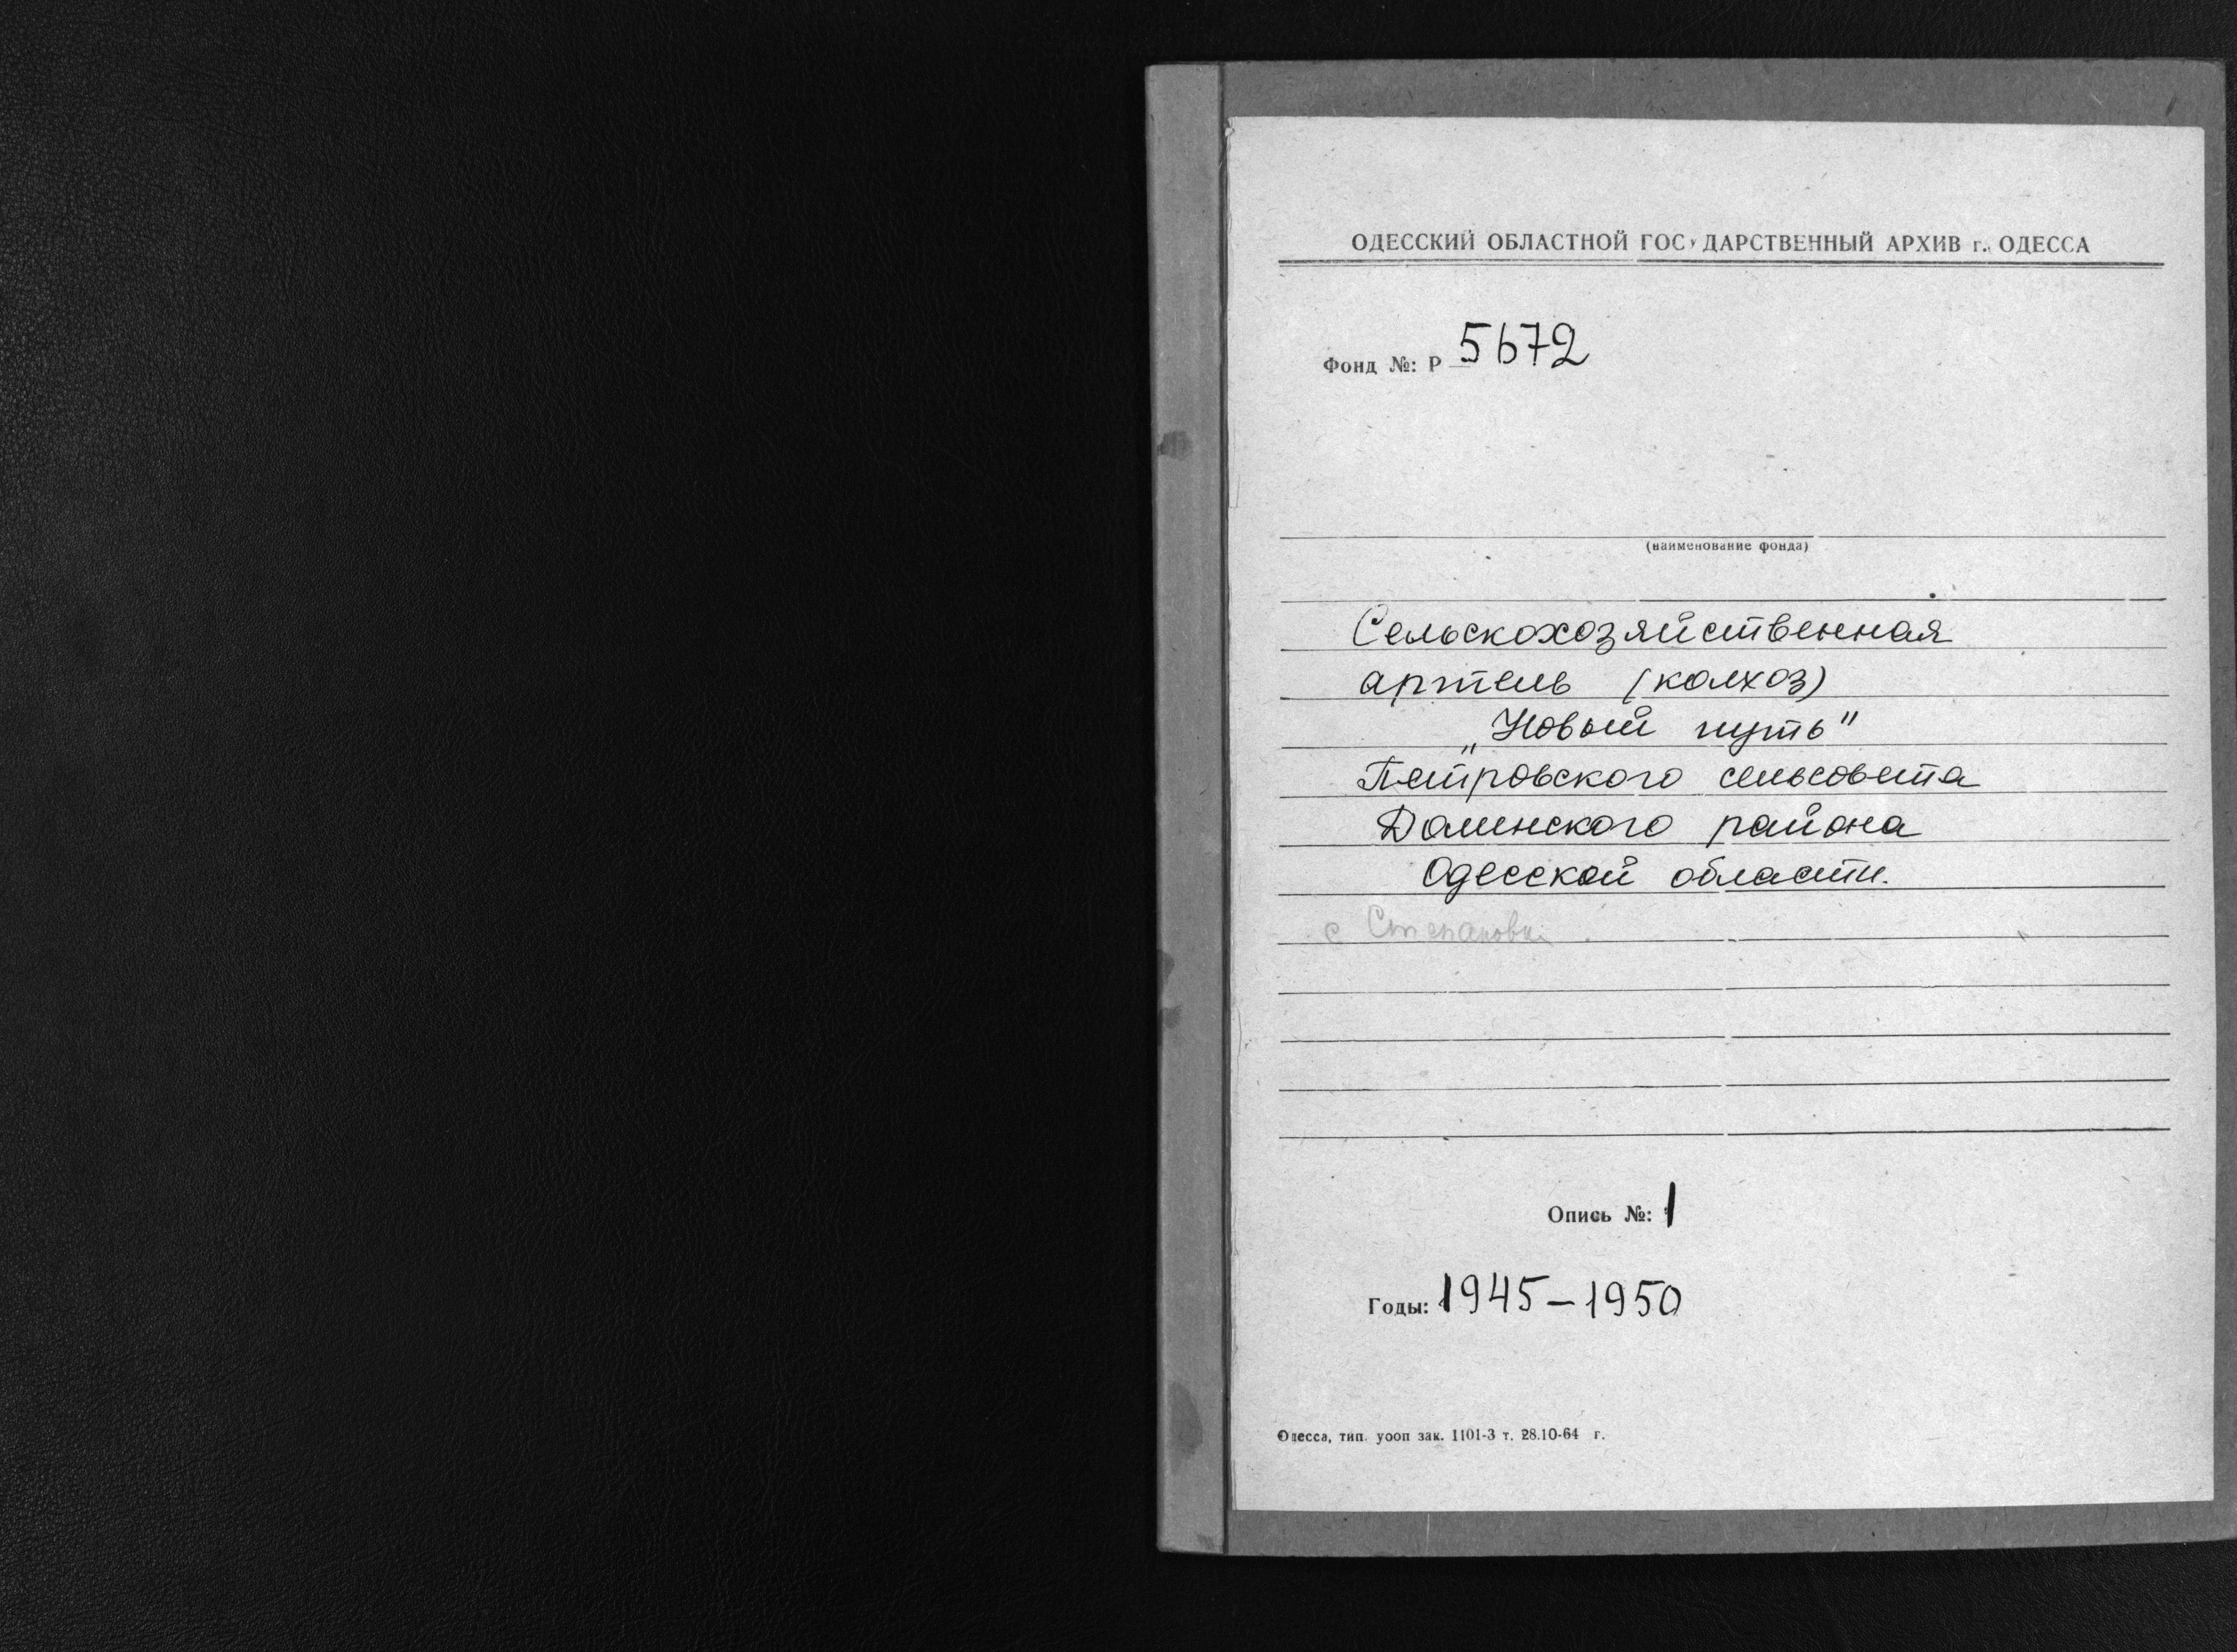 ОДЕССКИЙ ОБЛАСТНОЙ ГОСУДАРСТВЕННЫЙ АРХИВ г. ОДЕССА
Фонд №: Р 5672
(наименование фонда)
Сельскохозяйственная
артель (колхоз)
„Новый путь"
Петровского сельсовета
Долинского района
Одесской области.
с Степановка
Опись №: 1
Годы: 1945-1950
Одесса, тип. уооп зак. 1101-3 т. 28.10-64 г.